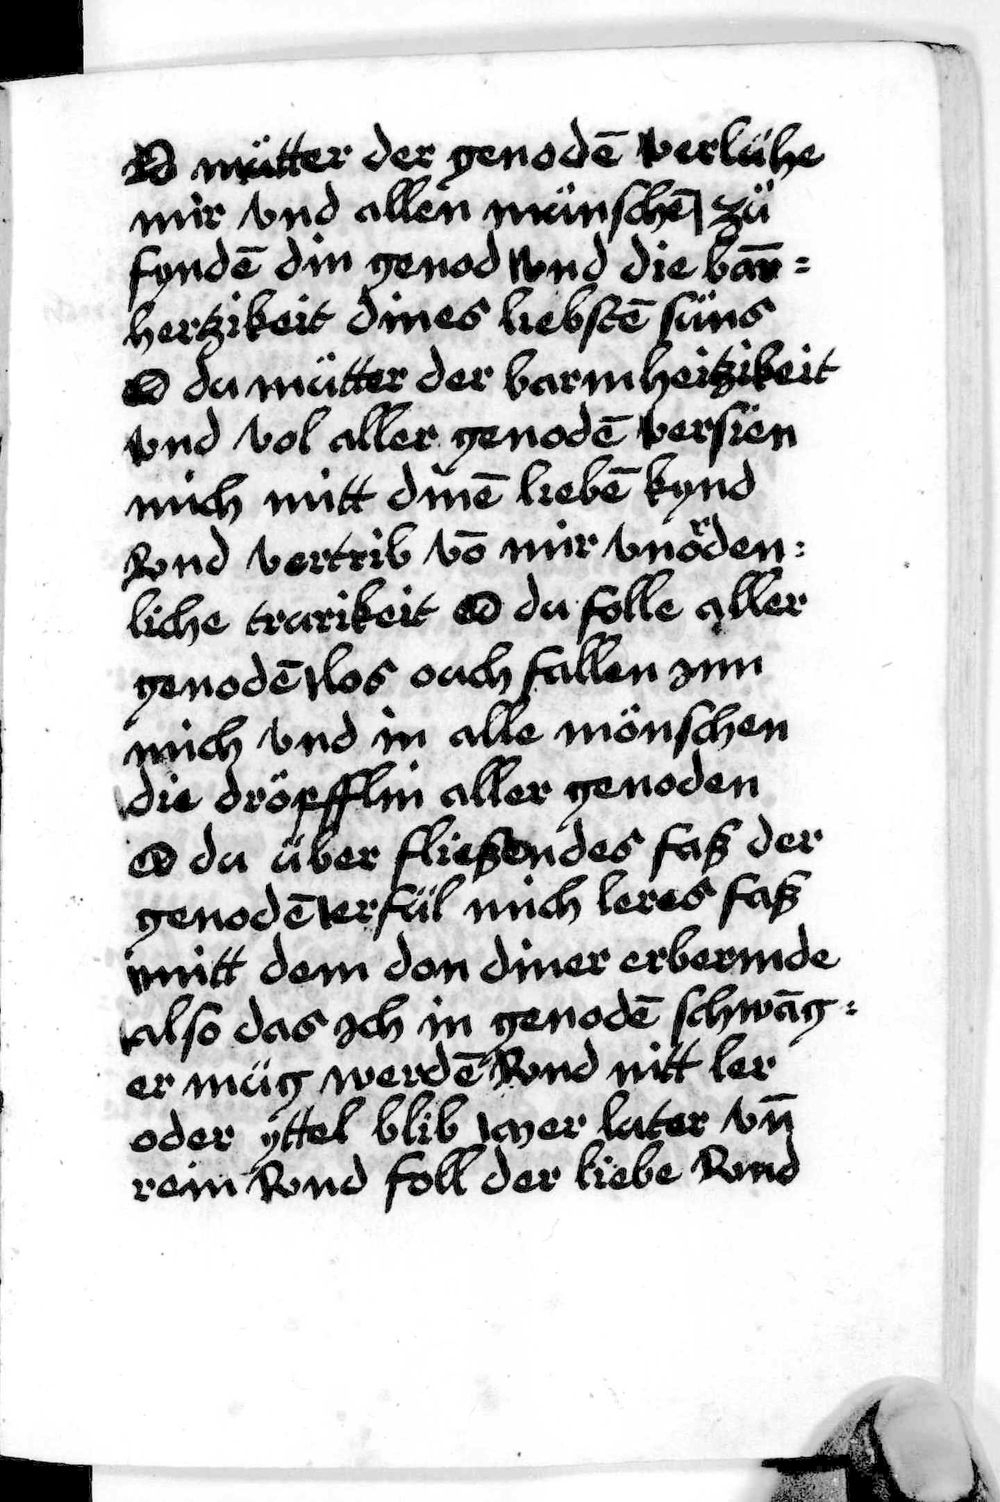 O mütter der genodē verlühe
mir vnd allen mänschē zü
fyndē din genod vnd die bar̄=
hertzikeit dines liebstē süns
O du mütter der barmheitzikeit
vnd vol aller genodē versien
mich mitt dinē liebē kynd
Vnd vertrib vō mir vnörden:
liche trurikeit O du folle aller
genodē los ouch fallen jnn
mich vnd in alle mönschen
die dröpfflin aller genoden
O du über fließendes faß der
genodē erfül mich leres faß
mitt dem don diner erbermde
also das jch in genodē schwāg:
er müg werdē Vnd nitt ler
oder yttel blib mer luter vn̄
rein Vnd foll der liebe Vnd